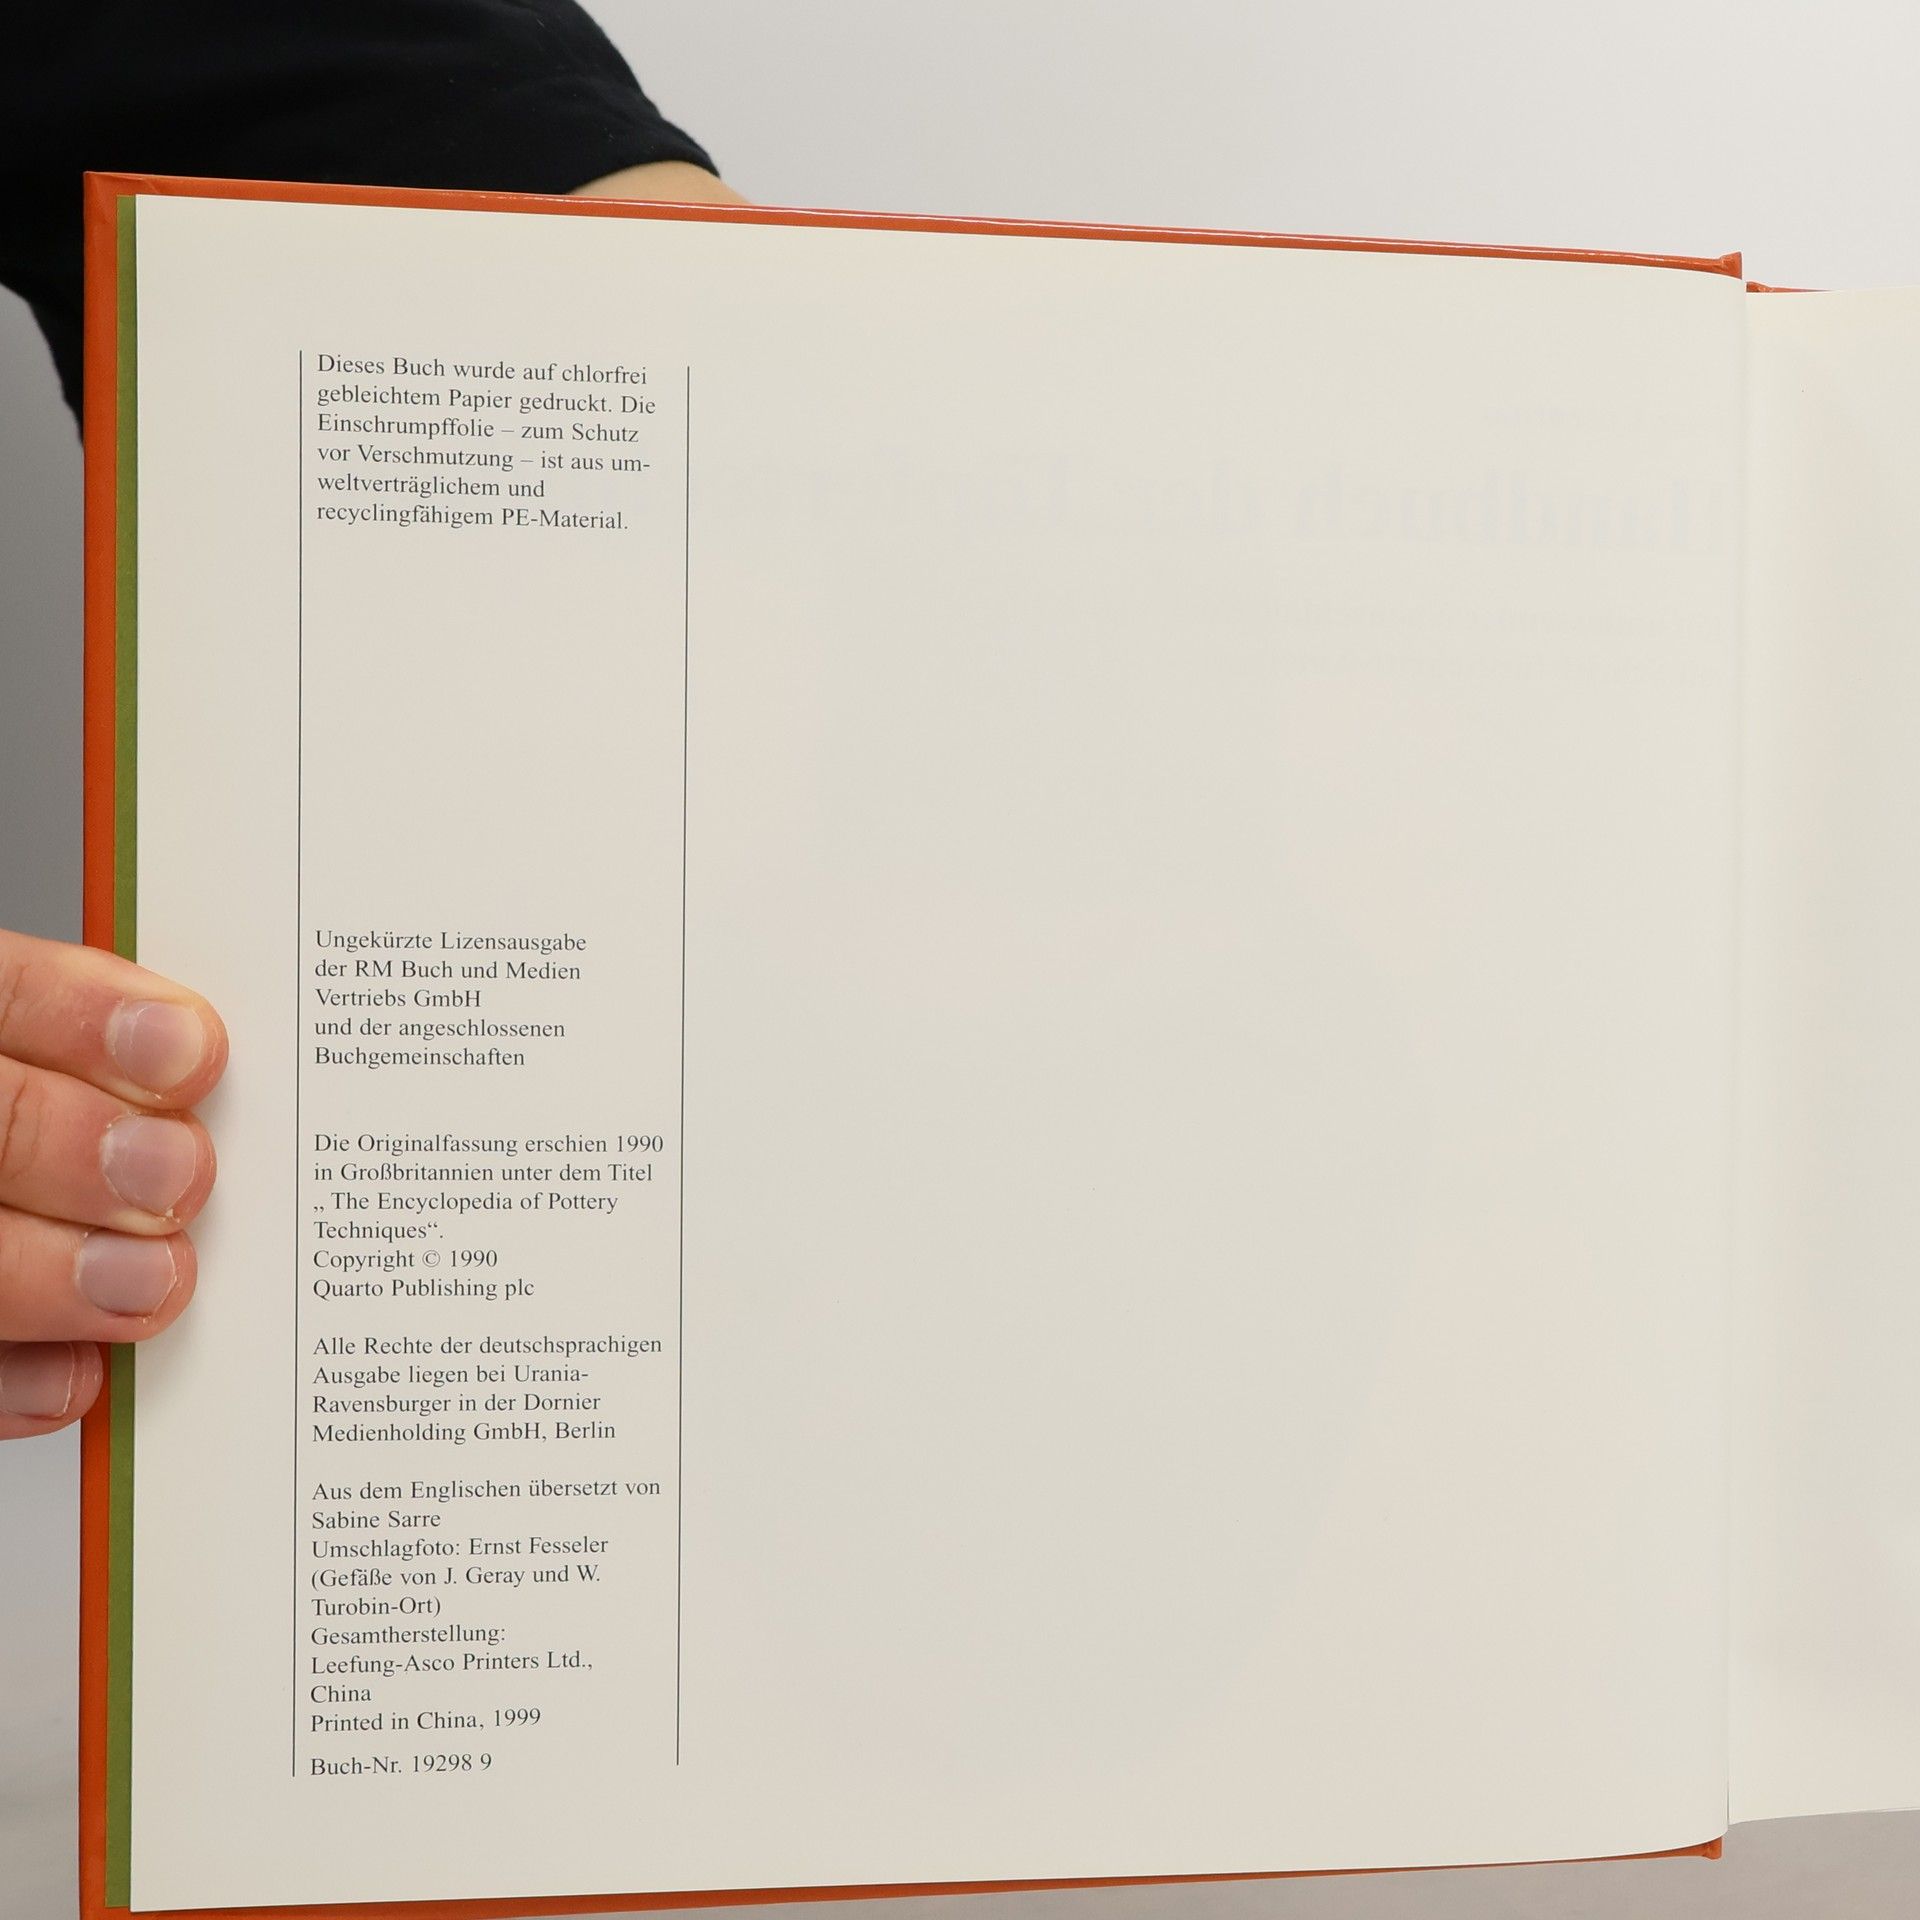 Dieses Buch wurde auf chlorfrei
gebleichtem Papier gedruckt. Die
Einschrumpffolie – zum Schutz
vor Verschmutzung – ist aus um-
weltverträglichem und
recyclingfähigem PE-Material.
Ungekürzte Lizensausgabe
der RM Buch und Medien
Vertriebs GmbH
und der angeschlossenen
Buchgemeinschaften
Die Originalfassung erschien 1990
in Großbritannien unter dem Titel
„ The Encyclopedia of Pottery
Techniques“.
Copyright © 1990
Quarto Publishing plc
Alle Rechte der deutschsprachigen
Ausgabe liegen bei Urania-
Ravensburger in der Dornier
Medienholding GmbH, Berlin
Aus dem Englischen übersetzt von
Sabine Sarre
Umschlagfoto: Ernst Fesseler
(Gefäße von J. Geray und W.
Turobin-Ort)
Gesamtherstellung:
Leefung-Asco Printers Ltd.,
China
Printed in China, 1999
Buch-Nr. 19298 9